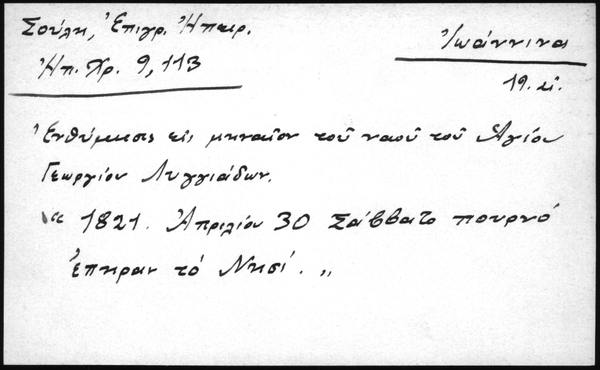 Σούλη, Ἐπιγρ. Ἠπειρ.
Ἠπ. Χρ. 9, 113
Ἰωάννινα
19. αἰ.
Ἐνθύμησις εἰς μηναῖον τοῦ ναοῦ τοῦ Ἁγίου
Γεωργίου Λυγγιάδων.
“ 1821. Ἀπριλίου 30 Σάββατο πουρνό
ἐπηραν τό Νησί. „